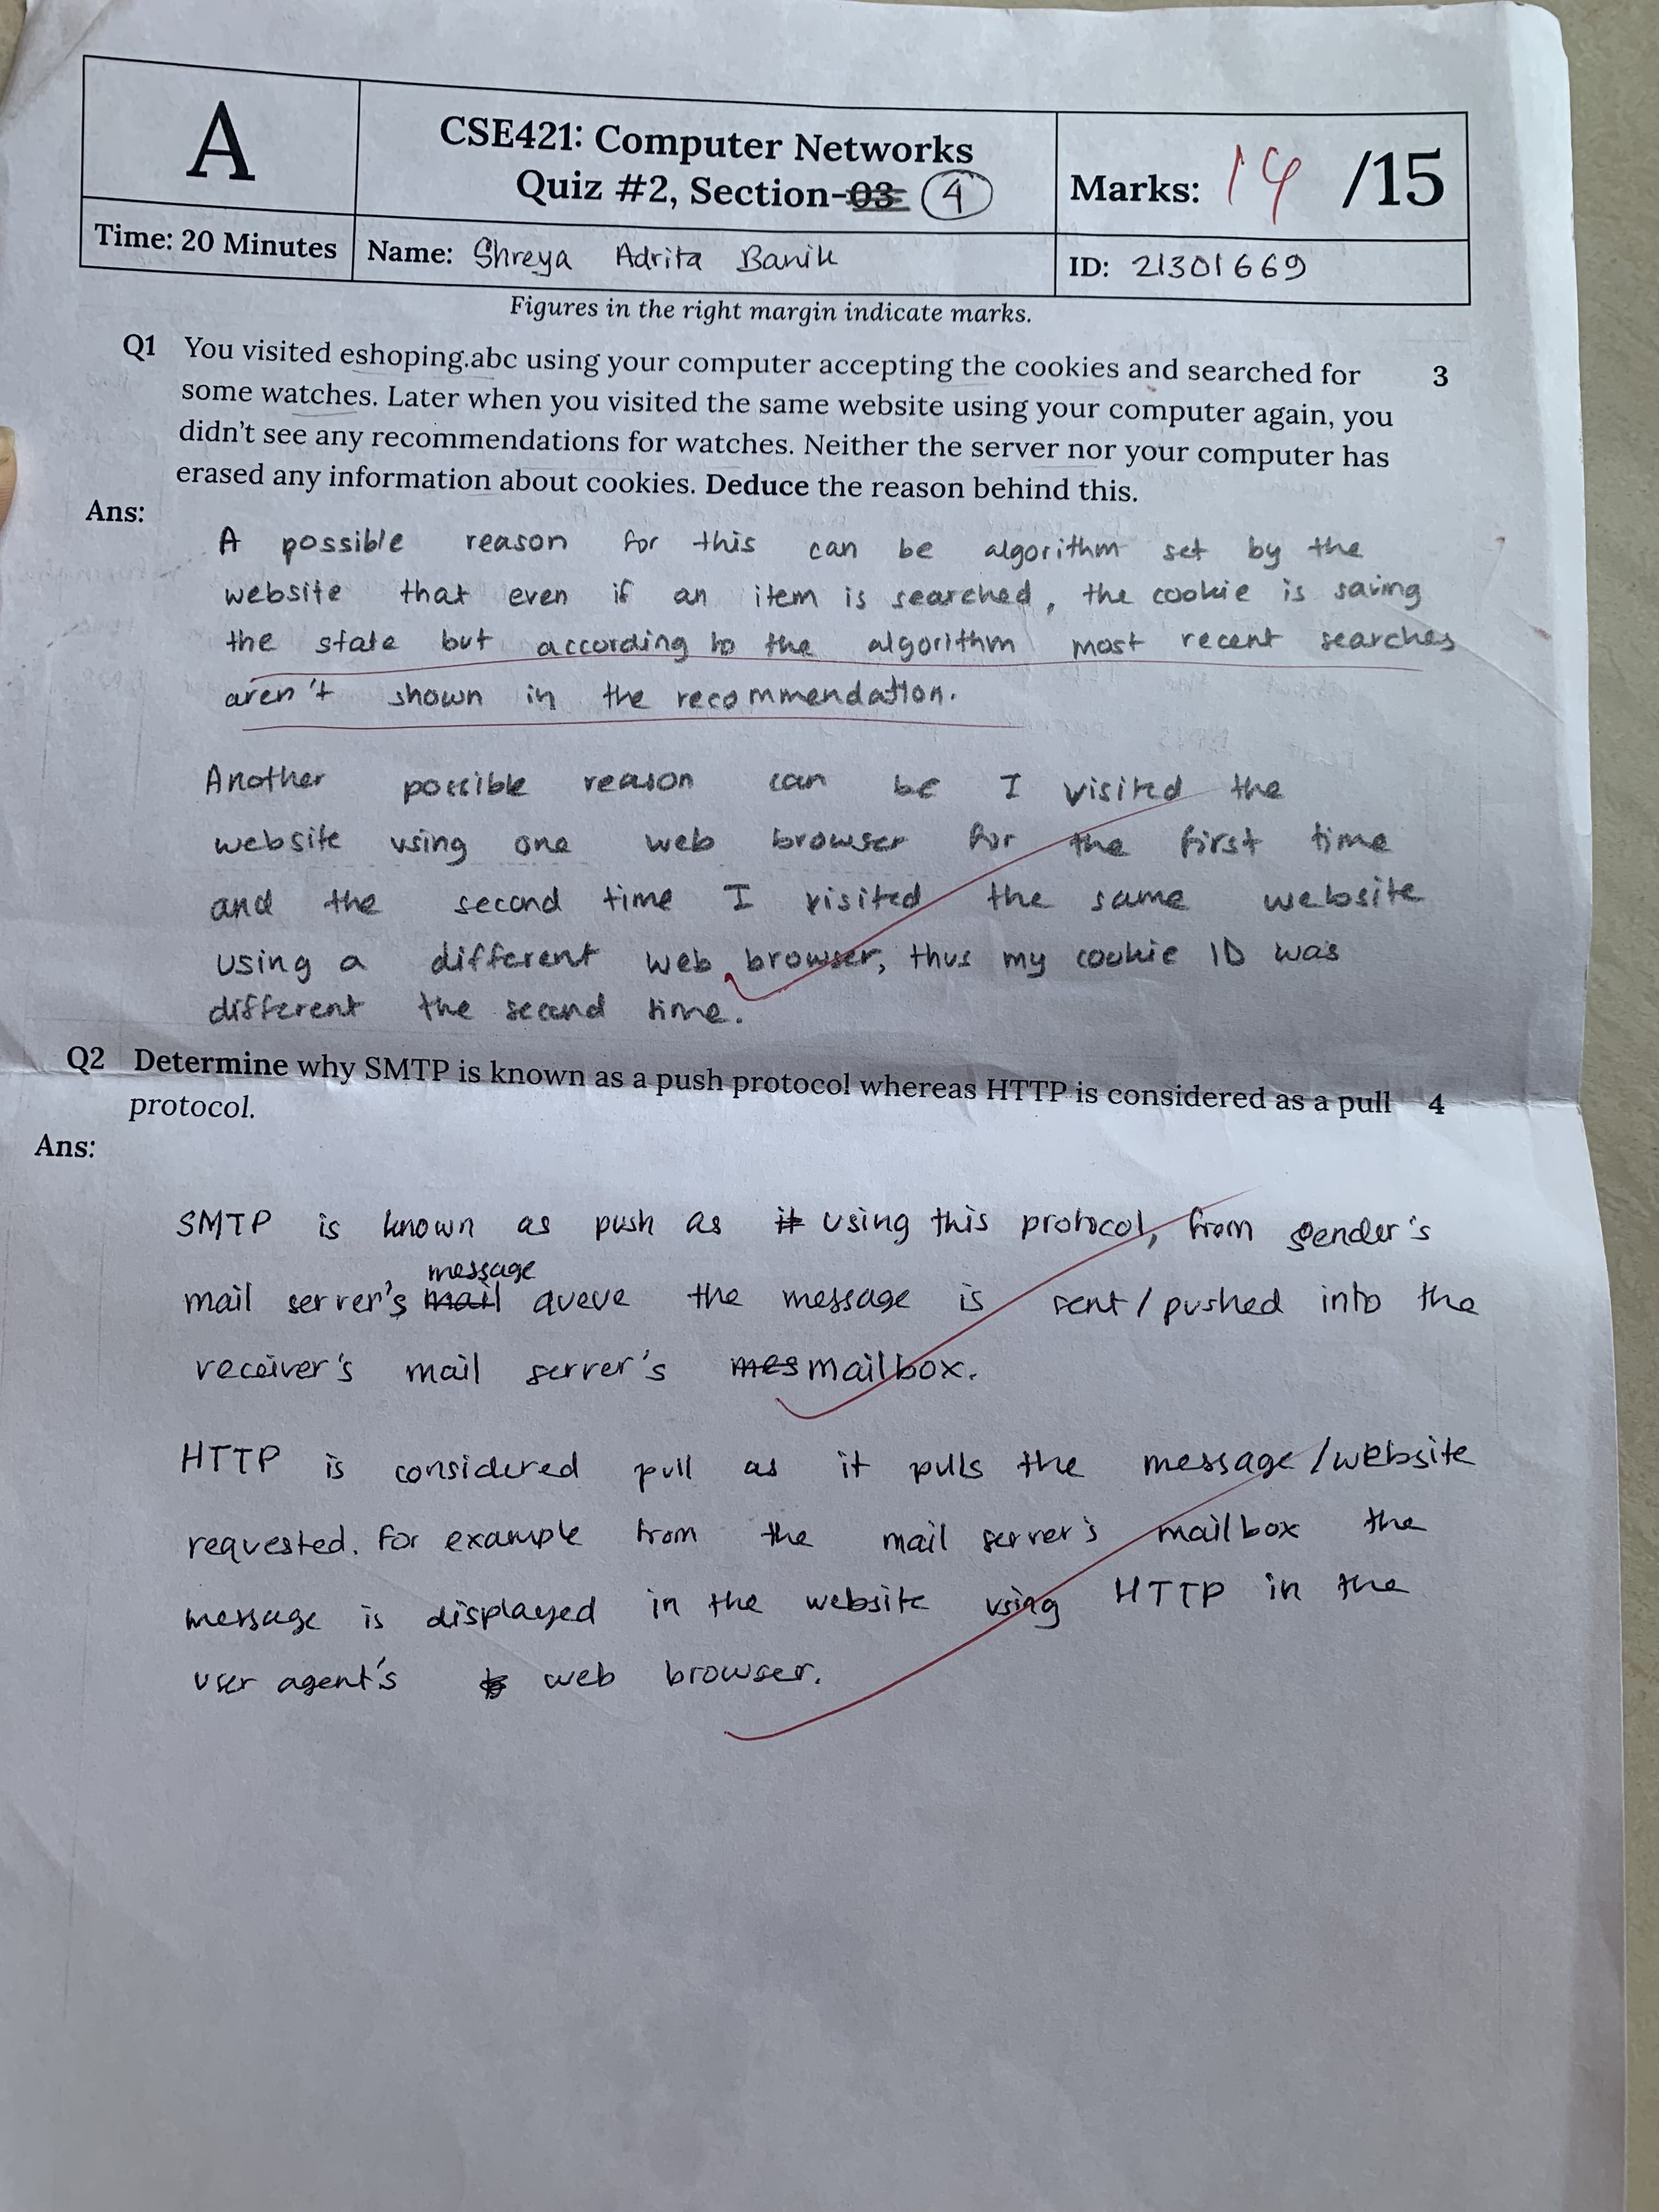 A
CSE421: Computer Networks
Quiz #2, Section-03 4
Marks: 14 /15
Time: 20 Minutes
Name: Shreya Adrita Banik
ID: 21301669
Figures in the right margin indicate marks.
Q1 You visited eshoping.abc using your computer accepting the cookies and searched for 3
some watches. Later when you visited the same website using your computer again, you
didn't see any recommendations for watches. Neither the server nor your computer has
erased any information about cookies. Deduce the reason behind this.
Ans:
A possible reason for this can be algorithm set by the
website that even if an item is searched, the cookie is saving
the state but according to the algorithm most recent searches
aren't shown in the recommendation.
Another possible reason can be I visited the
website using one web browser for the first time
and the second time I visited the same website
using a different web browser, thus my cookie ID was
different the second time.
Q2 Determine why SMTP is known as a push protocol whereas HTTP is considered as a pull 4
protocol.
Ans:
SMTP is known as push as it using this protocol, from sender's
message
mail server's mail queue the message is sent/pushed into the
receiver's mail server's mes mailbox.
HTTP is considered pull as it pulls the message/website
requested. For example from the mail server's mailbox the
message is displayed in the website using HTTP in the
user agent's web browser.